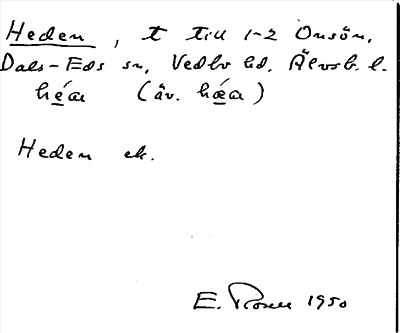 Heden, t till 1-2 Önsön,
Dals-Eds sn, Vedbo hd. Älvsb. l.
héa (äv. hǽa)
Heden ek.
E. Rosell 1950